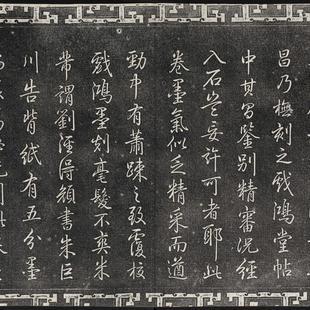 昌乃橅刻之戲鴻堂帖
中其昌鑒別精審況經
入石豈妄許可者耶此
卷墨氣似乏精采而遒
勁中有蕭疎之致覆校
戲鴻墨刻毫髮不爽米
芾謂劉涇得顏書朱巨
川告背紙有五分墨